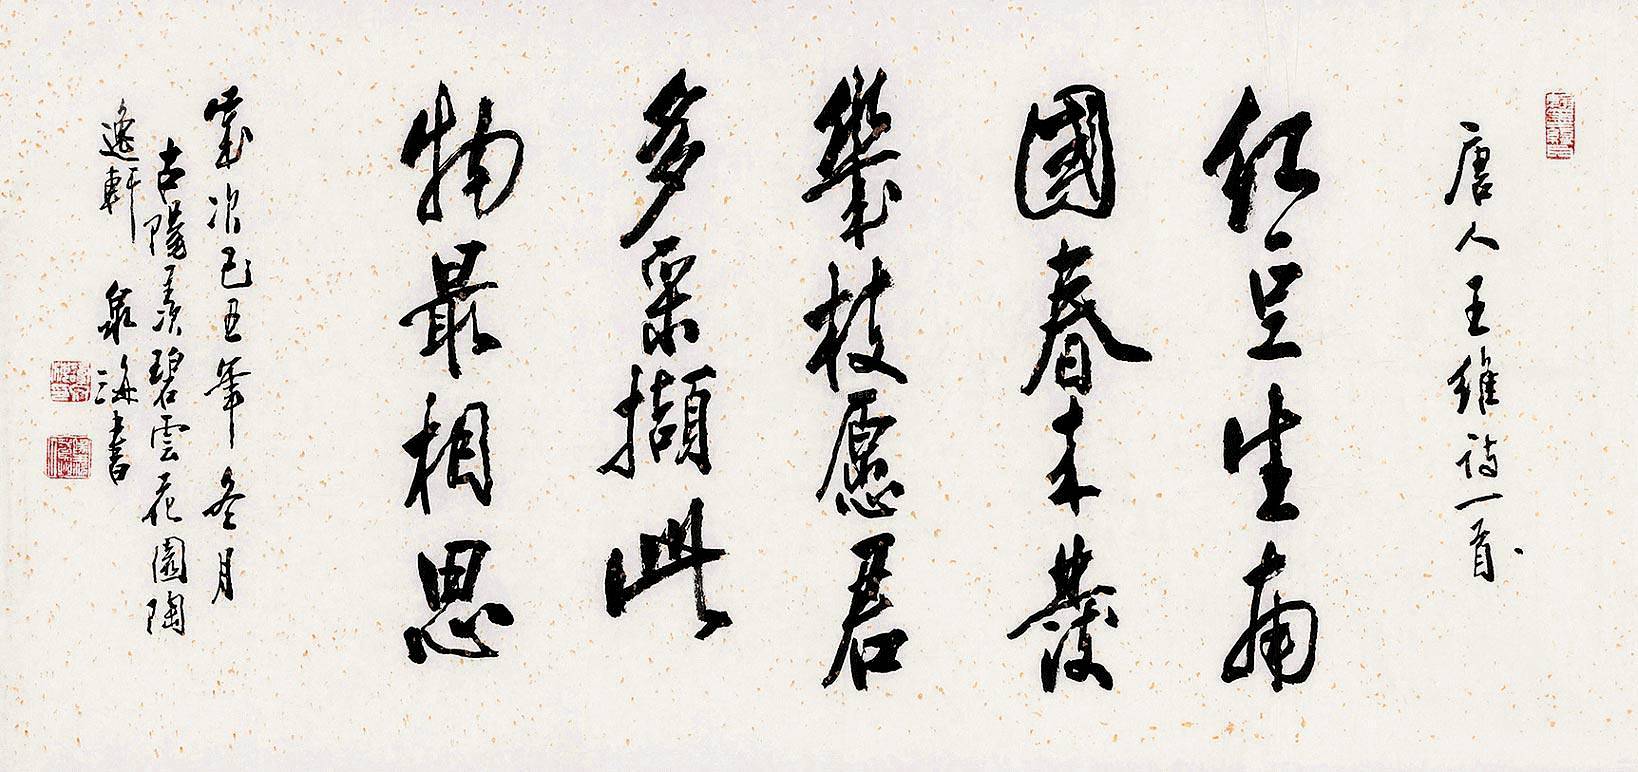 唐人王维诗一首
红豆生南
國春未發
幾枝愿君
多采擷此
物最相思
歲次己丑年冬月
古隆羨碧雲花園陶
逸軒 泉海書